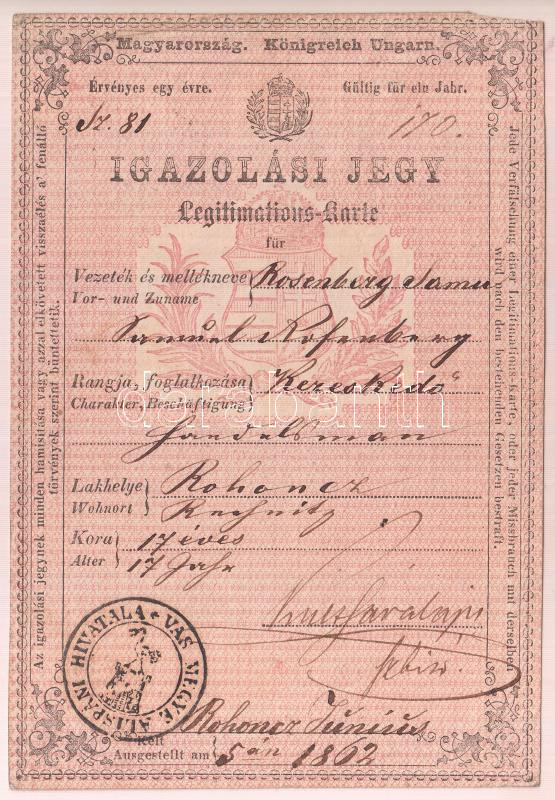 Magyarország. Königreich Ungarn.
Érvényes egy évre. Gültig für ein Jahr.
Sz. 81 170.
IGAZOLÁSI JEGY
Legitimations-Karte
für
Vezeték és mellékneve Rosenberg Samu
Vor- und Zuname
Samuel Rosenberg
Rangja, foglalkozása Kereskedő
Charakter, Beschäftigung
Handelsman
Lakhelye Rohoncz
Wohnort Rechnitz
Kora 17 éves
Alter 17 Jahr
Kelt Rohoncz Június
Ausgestellt am 5án 1862
VAS MEGYE ALISPÁNI HIVATALA
Az igazolási jegynek minden hamisítása vagy azzal elkövetett visszaélés a' fenálló
törvények szerint büntettetik.
Jede Verfälschung einer Legitimations-karte, oder jeder Missbrauch mit derselben
wird nach den bestehenden Gesetzen bestraft.
darabanth